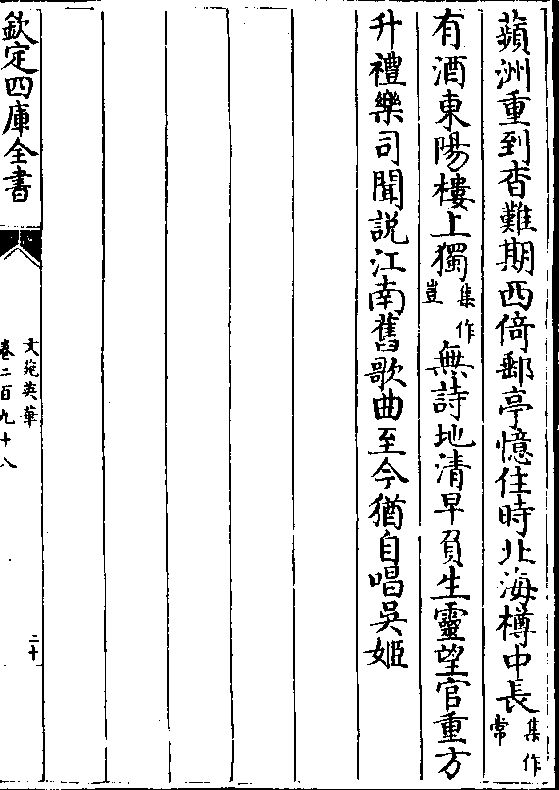 蘋洲重到杳難期西倚郵亭憶住時北海樽中長集作常
有酒東陽樓上獨集作豈無詩地清早負生靈望官重方
升禮樂司聞説江南舊歌曲至今猶自唱吳姬
欽定四庫全書
文苑英華
卷二百九十八
二十